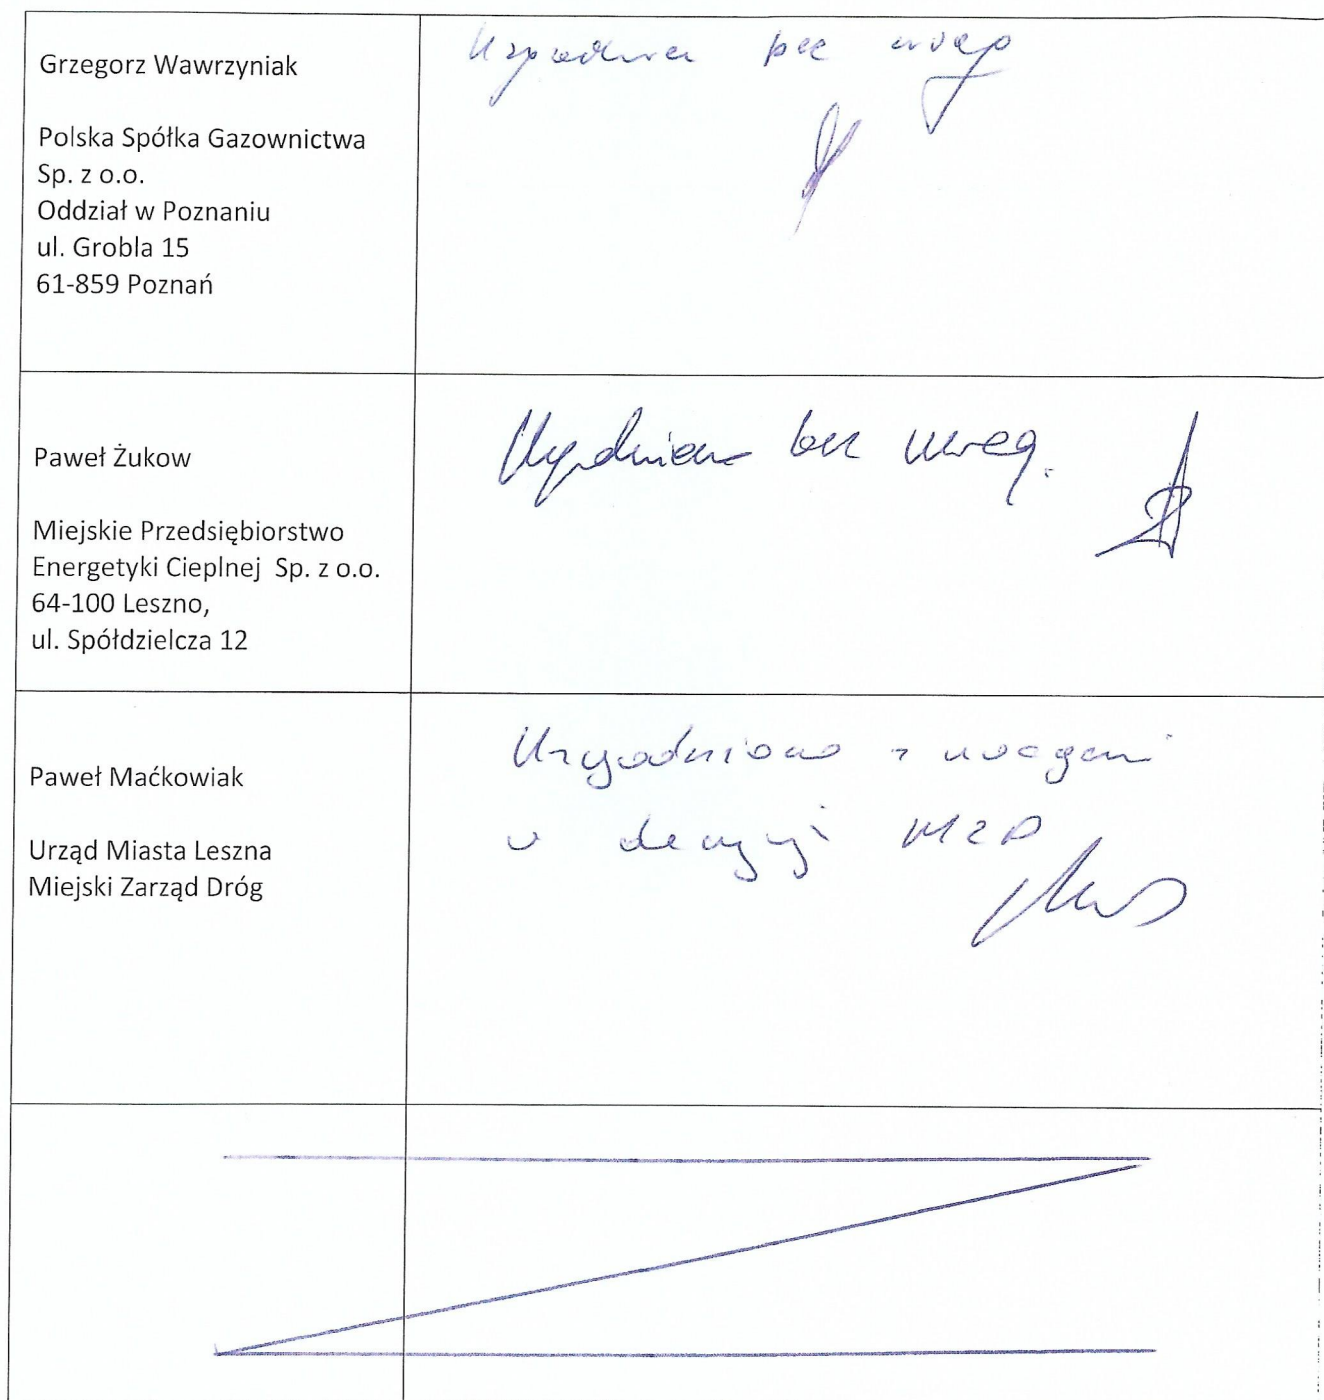 Grzegorz Wawrzyniak
Polska Spółka Gazownictwa
Sp. z o.o.
Oddział w Poznaniu
ul. Grobla 15
61-859 Poznań
Uzgodniono bez uwag
Paweł Żukow
Miejskie Przedsiębiorstwo
Energetyki Cieplnej Sp. z o.o.
64-100 Leszno,
ul. Spółdzielcza 12
Uzgodniono bez uwag.
Paweł Maćkowiak
Urząd Miasta Leszna
Miejski Zarząd Dróg
Uzgodniono z uwagami
w decyzji MZD